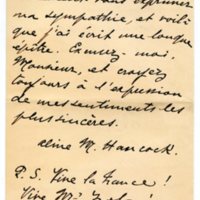 vous exprimer
ma sympathie, et voilà
que j'ai écrit une longue
épitre. Excusez-moi,
Monsieur, et croyez
toujours à l'expression
de mes sentiments les
plus sincères.
Aline M. Hancock.
P.S. Vive la France!
Vive Mr